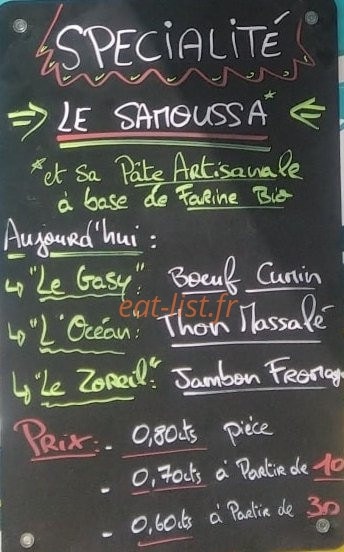 SPECIALITÉ
LE SAMOUSSA*
*et sa Pâte Artisanale
à base de Farine Bio
Aujourd'hui :
"Le Gasy": Boeuf Cumin
eat-list.fr
"L'Océan: Thon Massalé
"Le Zoreil": Jambon Fromag
PRIX: - 0,80cts pièce
- 0,70cts à Partir de 10
- 0,60cts à Partir de 30